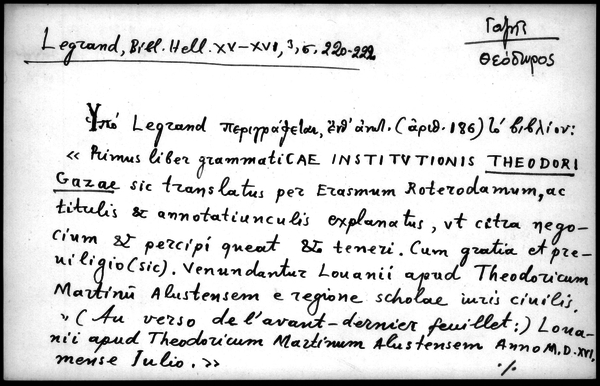 Legrand, Bill. Hell. XV–XVI, 3, σ. 220-222
Γαζῆς
Θεόδωρος
Ὑπό Legrand περιγράφεται, (ἀριθ. 186) τό βιβλίον:
« Primus liber grammatiCAE INSTITVTIONIS THEODORI
Gazae sic translatus per Erasmum Roterodamum, ac
titulis & annotatiunculis explanatus, vt citra nego-
cium & percipi queat & teneri. Cum gratia et pre-
uiligio (sic). Venundantur Louanii apud Theodoricum
Martinū Alustensem e regione scholae iuris ciuilis.
» (Au verso de l'avant-dernier feuillet:) Loua-
nii apud Theodoricum Martinum Alustensem Anno M.D.XVI,
mense Iulio. »
./.